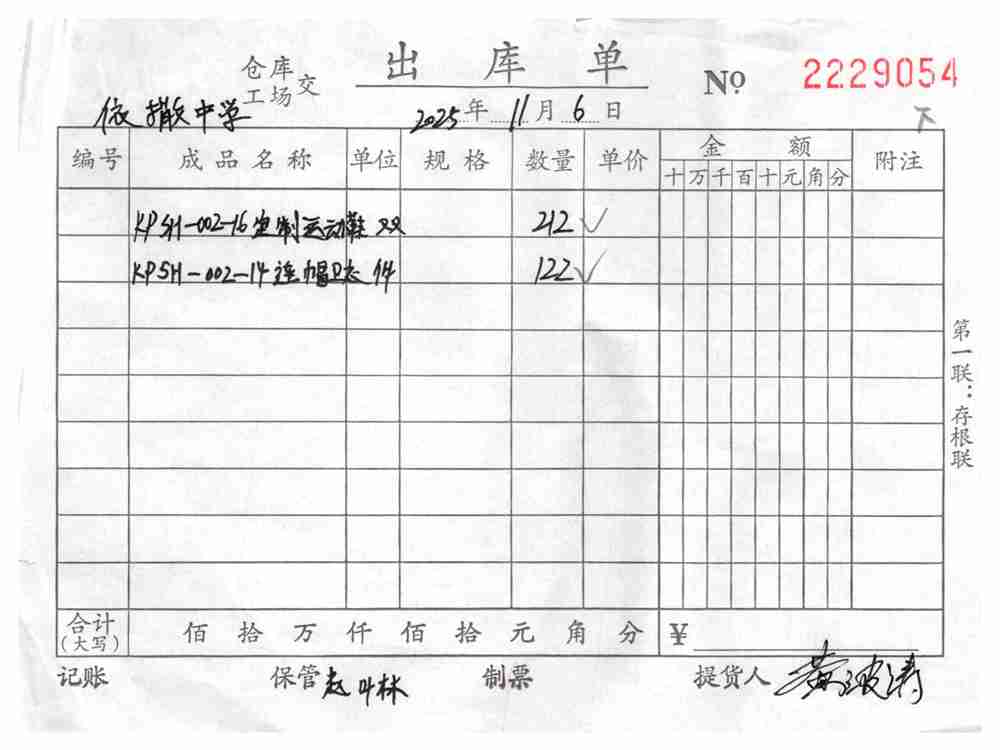 仓库
工场 交 出库单 № 2229054
依撒中学 2025年11月6日 下
编号 成品名称 单位 规格 数量 单价 金额 附注
十万千百十元角分
KPSH-002-16 定制运动鞋 双 212 ✓
KPSH-002-14 连帽卫衣 件 122 ✓
第一联:存根联
合计(大写) 佰 拾 万 仟 佰 拾 元 角 分 ¥
记账 保管 赵叶林 制票 提货人 黄波涛